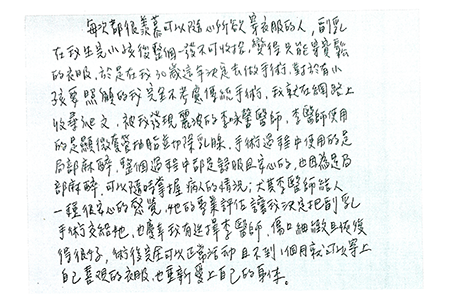 每次都很羨慕可以隨心所欲穿衣服的人，副乳
在我生完小孩後整個一發不可收拾，變得只能穿寬鬆
的衣服，於是在我30歲這年決定去做手術，對於有小
孩要照顧的我完全不考慮傳統手術，我就在網路上
收尋爬文，被我發現麗波的李醫師，李醫師使用
的是顯微套管抽脂並切除乳腺，手術過程中使用的是
局部麻醉，整個過程中都是舒服且安心的，也因為是局
部麻醉，可以隨時掌握病人的情況；尤其李醫師給人
一種很安心的感覺，她的專業評估讓我決定把副乳
手術交給她，也慶幸我有選擇李醫師，傷口細緻且恢復
得很好，術後完全可以正常活動且不到1個月就可以穿上
自己喜歡的衣服，也重新愛上自己的身体。